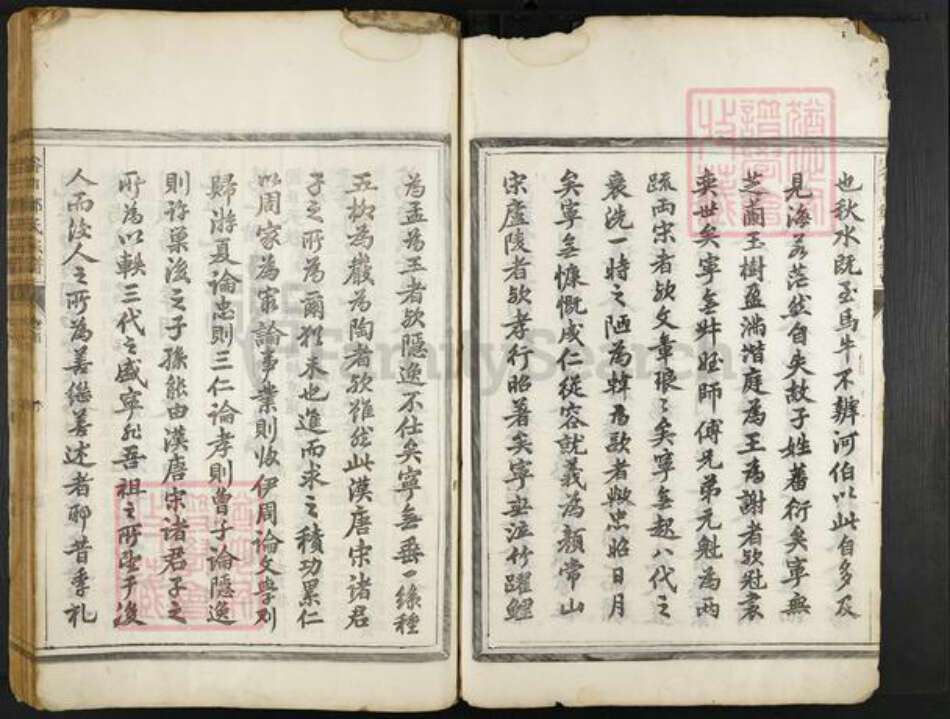 也秋水既至馬牛不辨河伯以此自多及
見海若茫然自失故子姓蕃衍矣寧無
芝蘭玉樹盈滿堦庭為王為謝者欤冠裳
奕世矣寧無 師傅兄弟元魁為兩
疏兩宋者欤文章琅〻矣寧無起八代之
衰洗一時之陋為韓為歐者歟忠昭日月
矣寧無慷慨成仁從容就義為顏常山
宋廬陵者欤孝行昭著矣寧無泣竹躍鯉
為孟為王者欤隱逸不仕矣寧無垂一絲種
五柳為嚴為陶者欤雖然此漢唐宋諸君
子之所為爾猶未也進而求之積功累仁
以周家為家論事業則 伊周論文學則
歸游夏論忠則三仁論孝則曾子論隱逸
則許巢後之子孫能由漢唐宋諸君子之
所為以軼三代之盛寧非吾祖之所望于後
人而後人之所為善繼善述者耶昔季札
FamilySearch